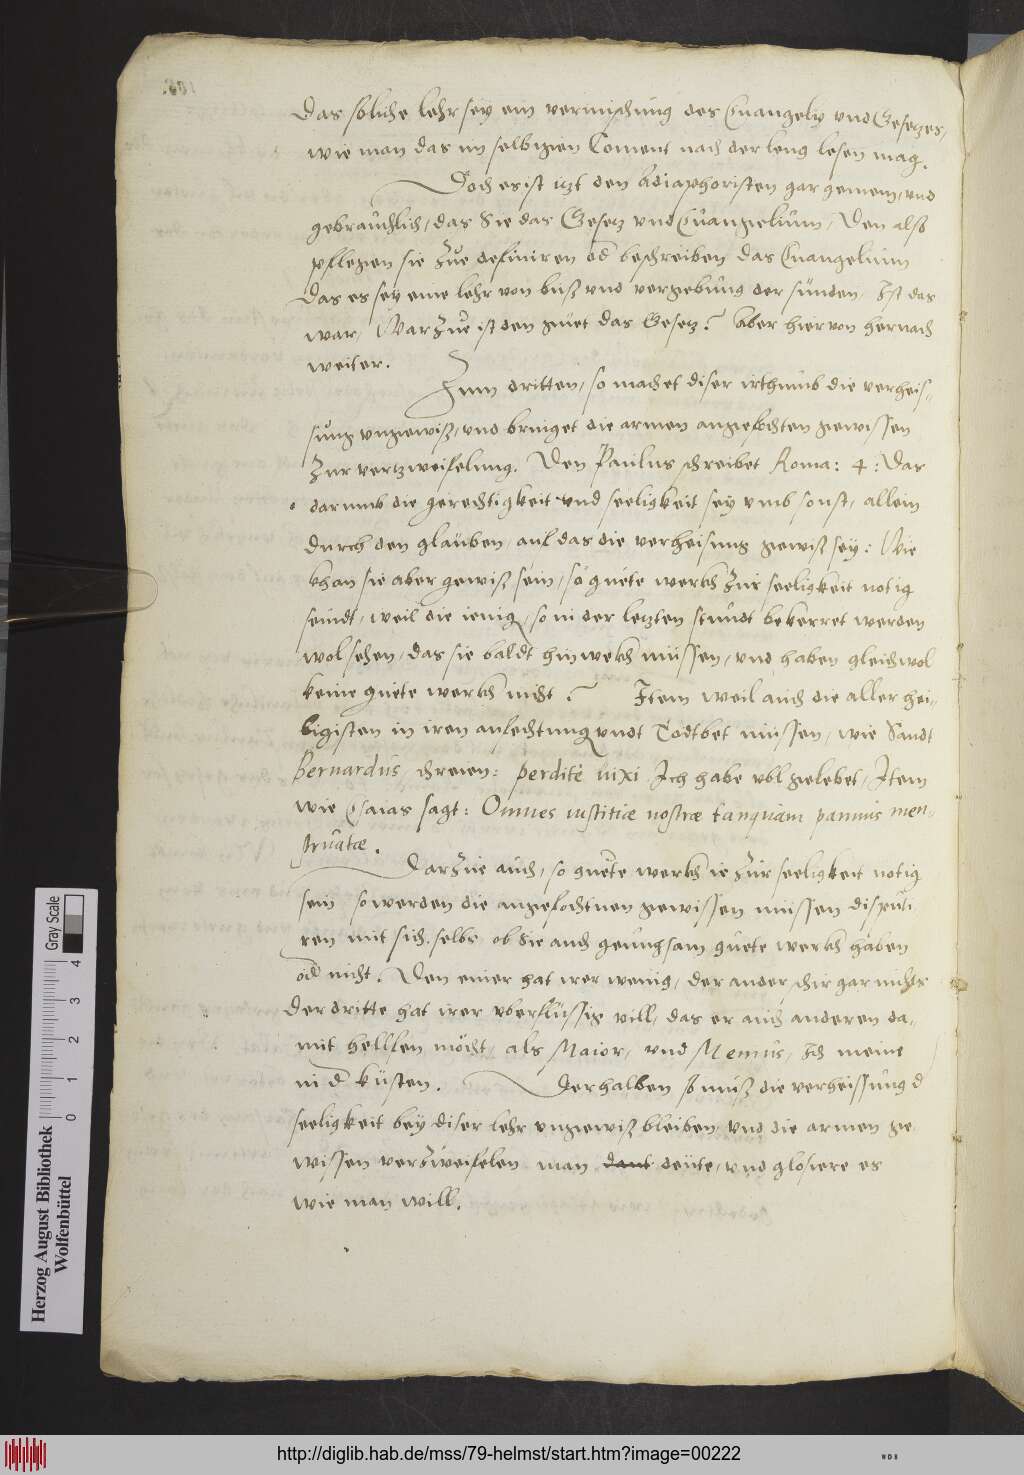 Das soliche lehr sey ein vermischung des Euangelij vnd Gesetzes,
wie man das im selbigen Coment nach der leng lesen mag.
Doch es ist itzt den Adiaphoristen gar gemein, vnd
gebrauchlich, das Sie das Gesetz vnd Euangelium, Den also
pflegen sie zue definiren od beschreiben das Euangelium
Das es sey eine lehr von buß vnd vergebung der sünden, Ist das
war, Warzue ist den guet das Gesetz? Aber hieruon hernach
weiter.
Zum dritten, so machet diser irthumb die verheis-
sung vngewiß, vnd bringet die armen angefochten gewissen
zur vertzweifelung. Den Paulus schreibet Roma: 4: Das
darumb die gerechtigkeit vnd seeligkeit sey vmb sonst, allein
durch den glauben, auf das die verheisung gewiß sey: Wie
khan sie aber gewiß sein, so guete werkh zur seeligkeit notig
seindt, weil die ienig, so in der letzten stundt bekerret werden
wol sehen, das sie baldt hinwekh müssen, vnd haben gleichwol
keine guete werkh nicht? Item weil auch die aller hei-
ligisten in iren anfechtung vndt Todtbet müssen, wie Sandt
Bernardus, schreien: perditè uixi Ich habe vbl gelebet, Item
wie Esaias sagt: Omnes iustitiæ nostræ tanquam pannus men-
struatæ.
Darzue auch, so guete werkh ie zur seeligkeit notig
sein so werden die angefochtnen gewissen müssen disputi
ren mit sich selbs ob sie auch genungsam guete werkh haben
od nicht. Den einer hat irer wenig, der ander schir gar nichts
der dritte hat irer vberflüssig vill, das er auch anderen da-
mit hellfen möcht, als Maior, vnd Menius, Ich meine
in d küsten. Derhalben so muß die verheissung d
seeligkeit bey diser lehr vngewiß bleiben, vnd die armen ge
wissen verzweifelen man dant deüte, vnd glosiere es
wie man will.
Herzog August Bibliothek
Wolfenbüttel
0 1 2 3 4
Gray Scale
http://diglib.hab.de/mss/79-helmst/start.htm?image=00222